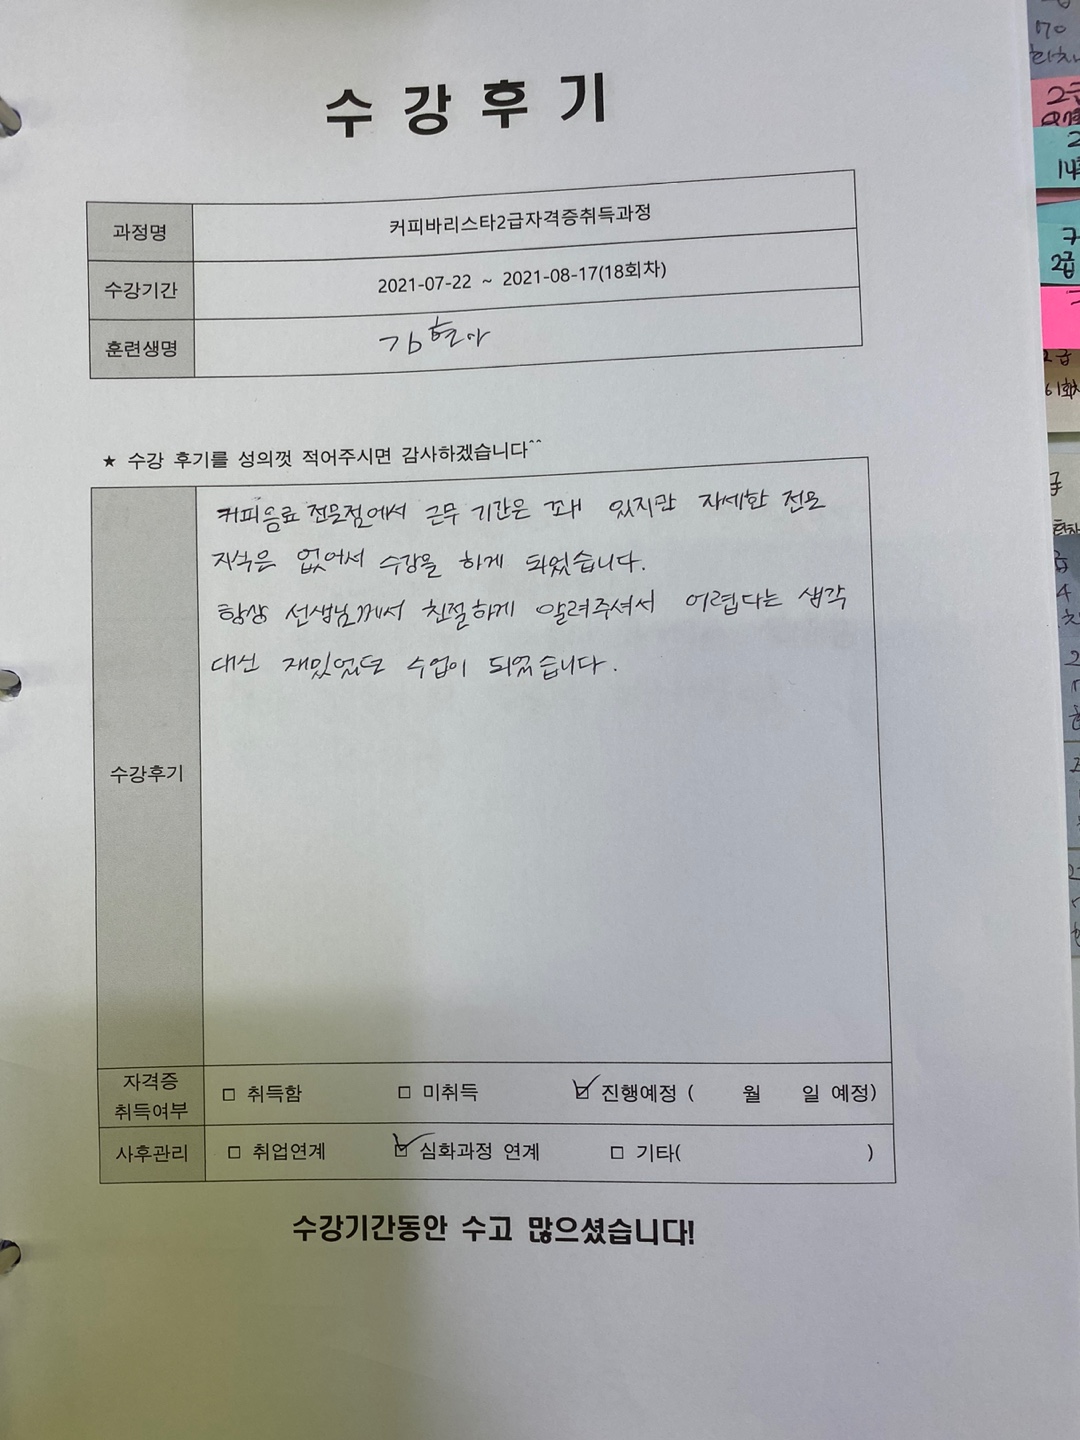 수강후기
과정명 커피바리스타2급자격증취득과정
수강기간 2021-07-22 ~ 2021-08-17(18회차)
훈련생명 김현아
★ 수강 후기를 성의껏 적어주시면 감사하겠습니다^^
커피음료 전문점에서 근무 기간은 꽤 있지만 자세한 전문
지식은 없어서 수강을 하게 되었습니다.
항상 선생님께서 친절하게 알려주셔서 어렵다는 생각
대신 재밌었던 수업이 되었습니다.
수강후기
자격증
취득여부 □ 취득함 □ 미취득 ☑ 진행예정 ( 월 일 예정)
사후관리 □ 취업연계 ☑ 심화과정 연계 □ 기타( )
수강기간동안 수고 많으셨습니다!
2급
2급